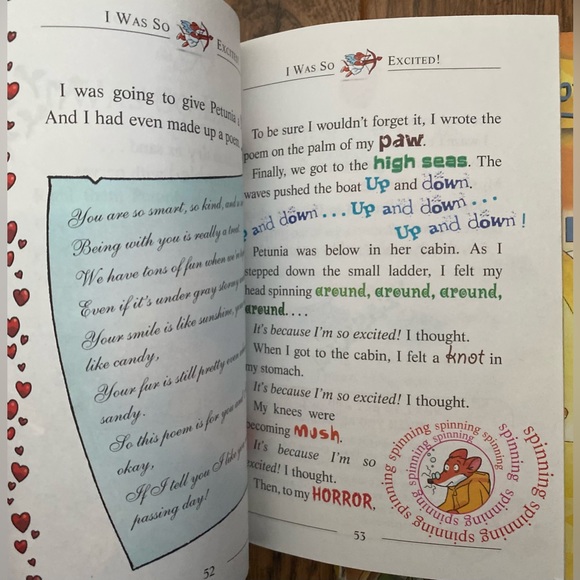 I Was So
I was going to give Petunia
And I had even made up a poem
You are so smart, so kind, and
Being with you is really a
We have tons of fun when we
Even if it's under gray stormy
Your smile is like sunshine,
like candy,
Your fur is still pretty even
sandy.
So this poem is for you and
okay,
If I tell you I like you
passing day!
52
I Was So Excited!
To be sure I wouldn't forget it, I wrote the
poem on the palm of my paw.
Finally, we got to the high seas. The
waves pushed the boat Up and down.
and down... Up and down...
Up and down!
Petunia was below in her cabin. As I
stepped down the small ladder, I felt my
head spinning around, around, around,
around....
It's because I'm so excited! I thought.
When I got to the cabin, I felt a knot in
my stomach.
It's because I'm so excited! I thought.
My knees were
becoming mush.
It's because I'm so
excited! I thought.
Then, to my HORROR,
spinning spinning spinning spinning spinning spinning spinning spinning
53